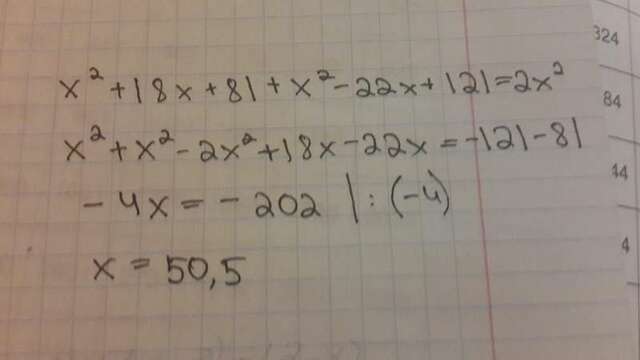 x² + 18x + 81 + x² - 22x + 121 = 2x²
x² + x² - 2x² + 18x - 22x = -121 - 81
- 4x = - 202 | : (-4)
x = 50,5
324
84
44
4